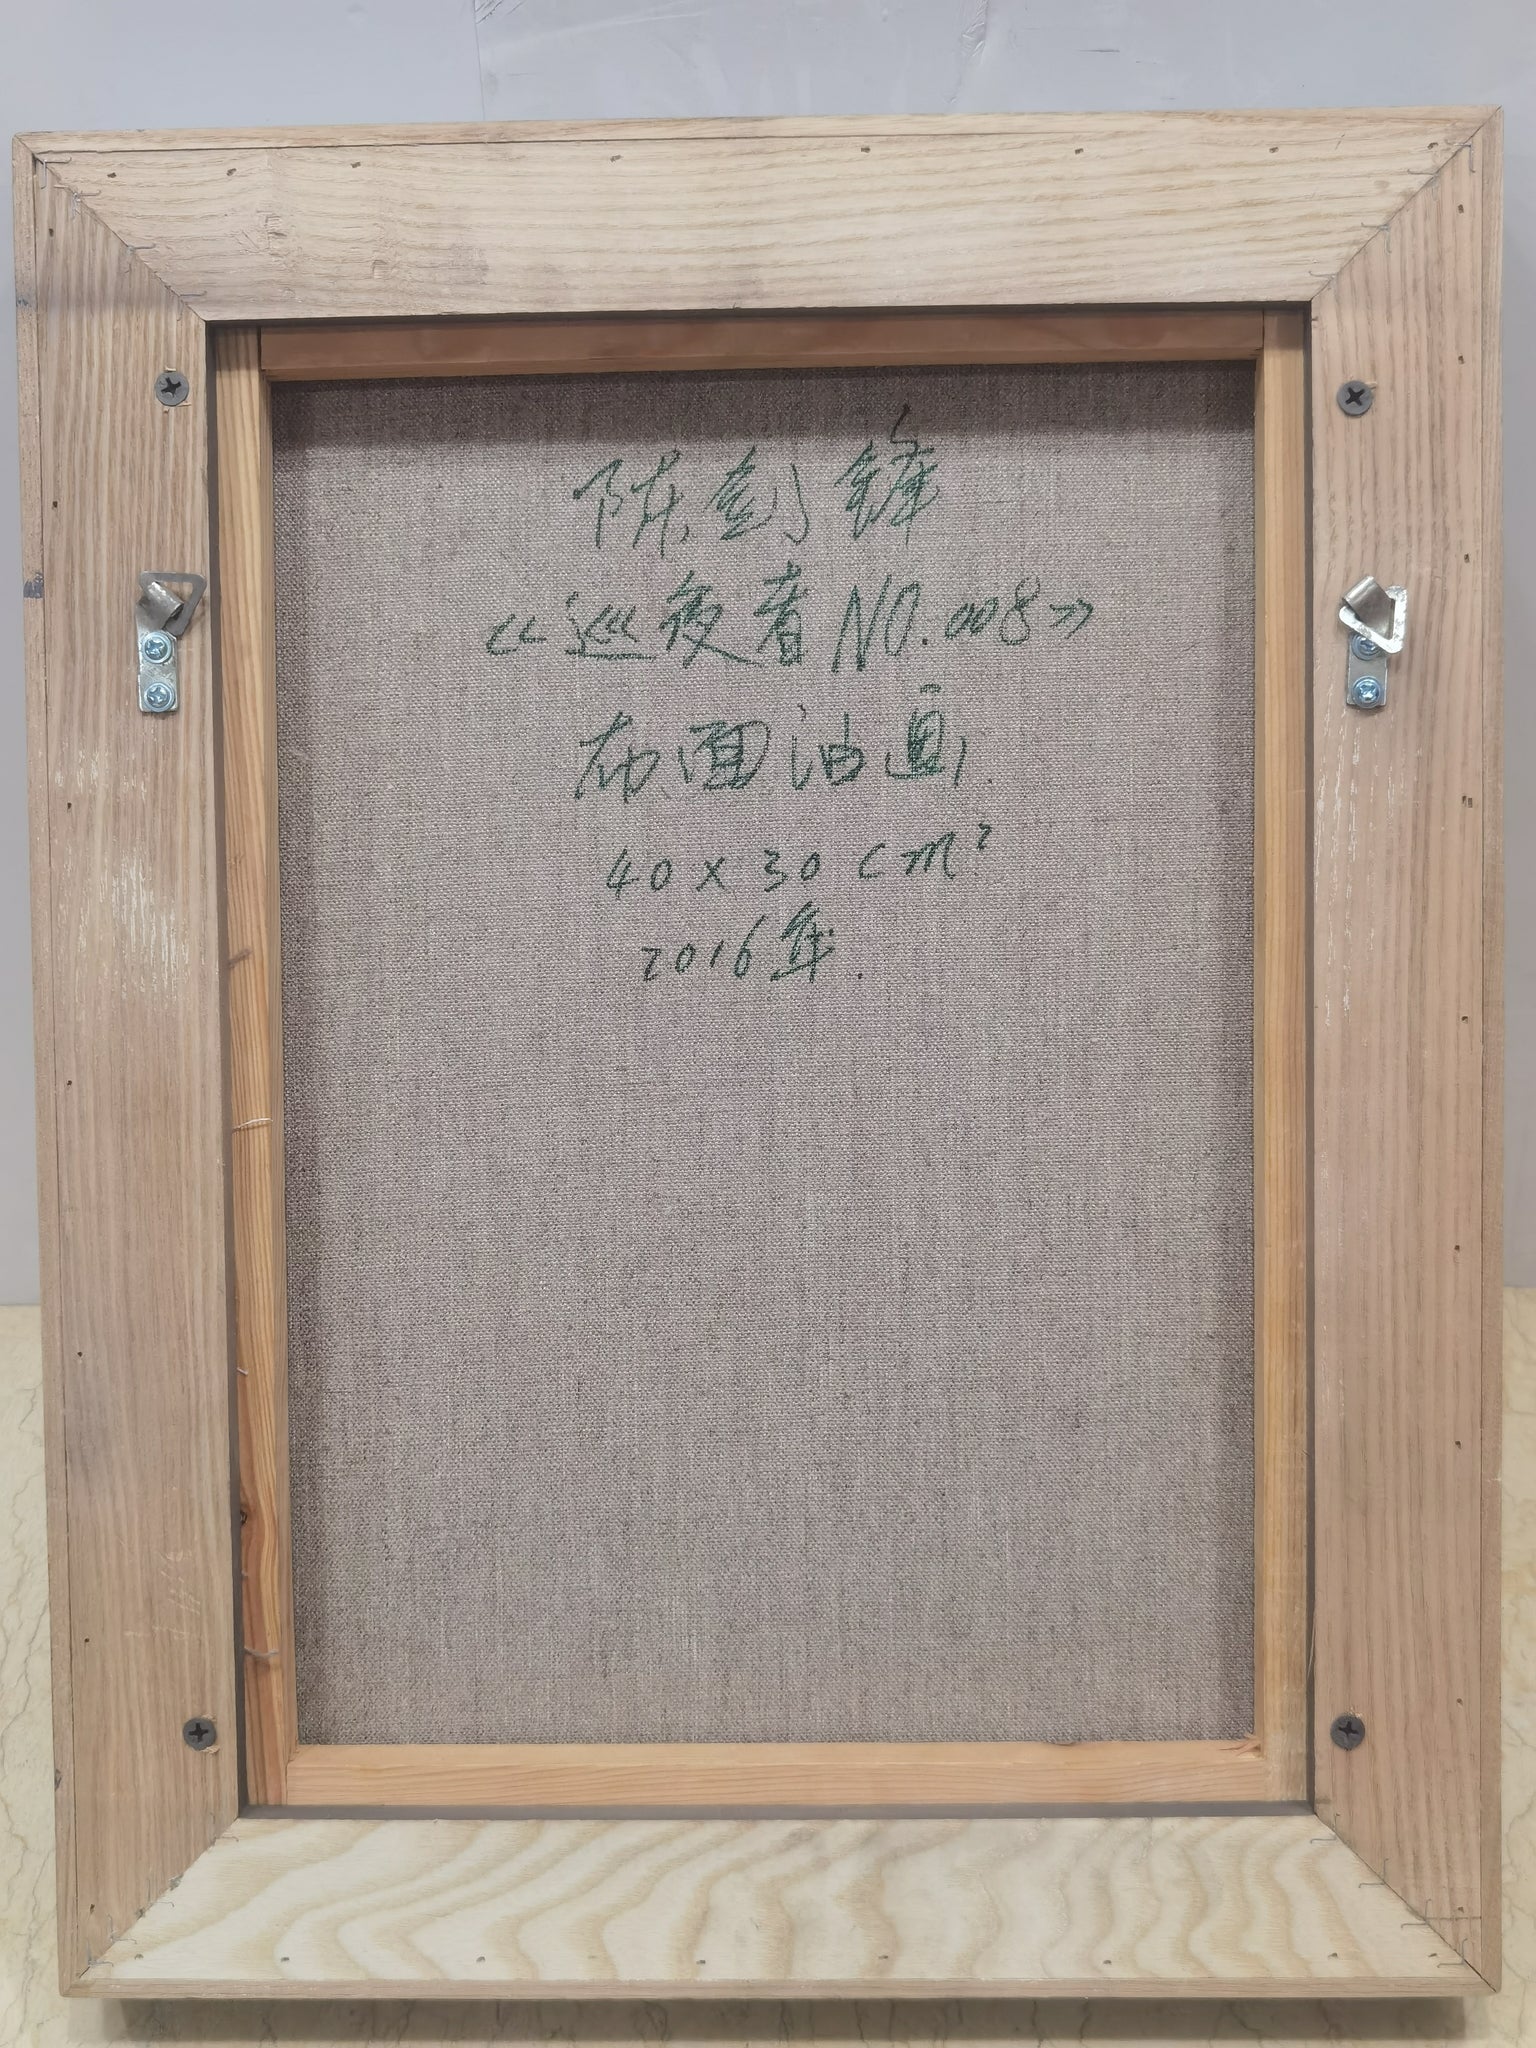 陈剑锋
《巡夜者NO.008》
布面油画.
40×30cm²
2016年.